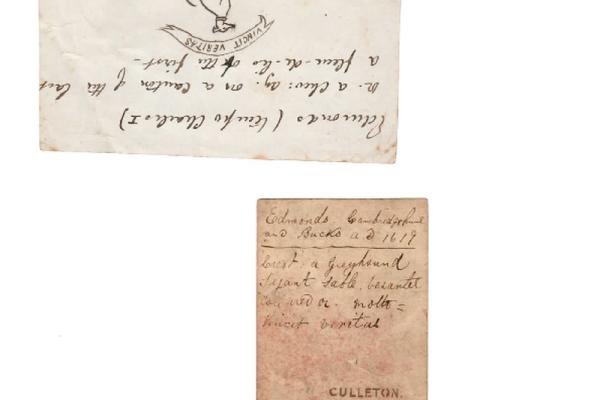 Edmonds (tempo Charles I)
Or. a chev: az. on a canton of the last
a fleur-de-lis of the first-
VINCIT VERITAS
Edmonds. Cambridgshire
and Bucks a D 1619
Crest. a Greyhound
Sejant Sable. besantet
Collared or. motto =
Vincit veritas
CULLETON.